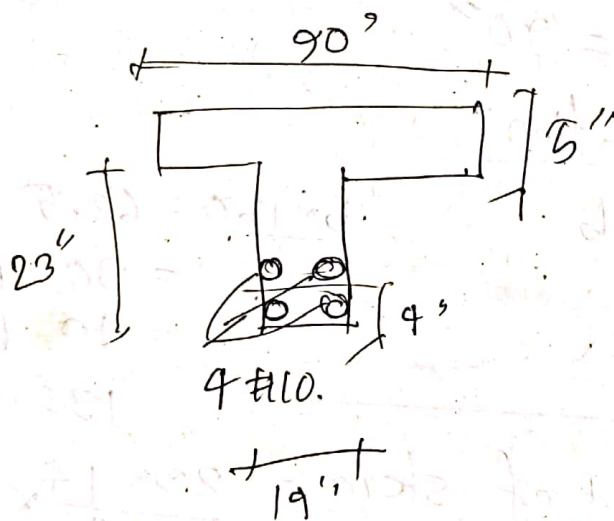 90"
5"
23"
4"
4 #10.
19"